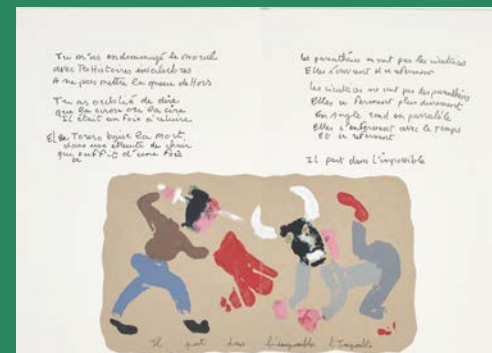 Tu m'as endommagé le moral
avec Tes Histoires
A ne pas mettre la queue de Hors
Tu as oublié de dire
que la
Il était un fois à reluire
Et le Torero baise la mort
dans une de chair
qui suffit d'une fois
Les parenthèses ne sont pas les cicatrices
Elles s'ouvrent et se referment
Les cicatrices ne sont pas des parenthèses
Elles se ferment plus durement
En Angle rond en parallèle
Elles s'enferment avec le temps
Et se referment
Il part dans l'impossible
Il part dans l'impossible l'Impossible